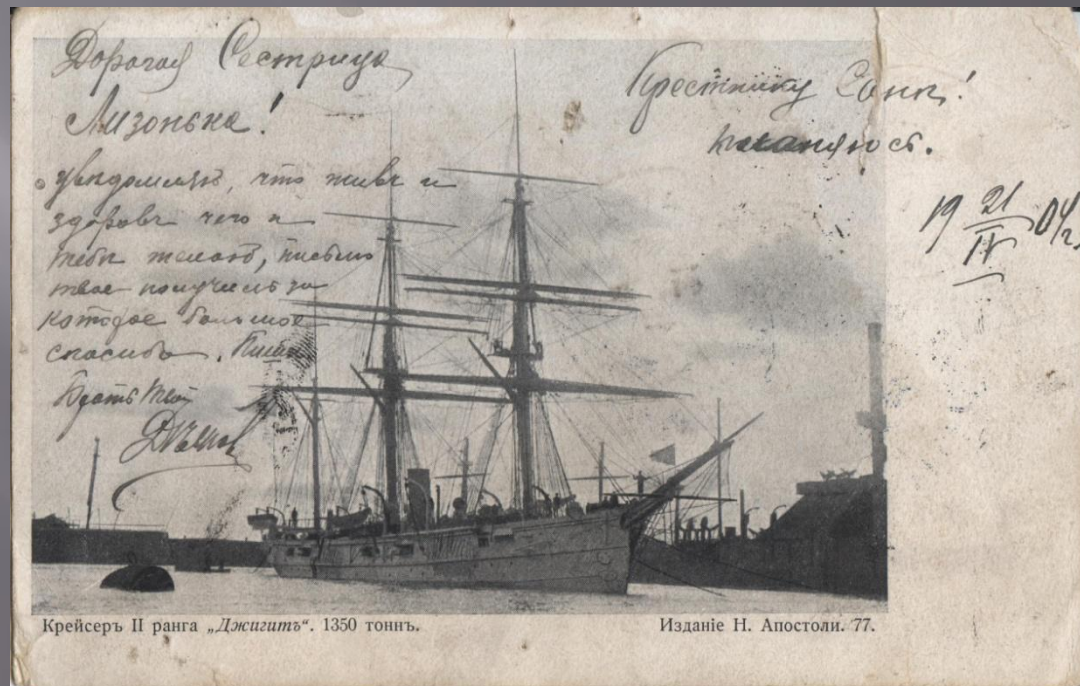 Дорогая Сестрица
Лизонька!
увѣдомляю, что живъ и
здоровъ чего и
тебѣ желаю, письмо
твое получилъ за
которое большое
спасибо. Пиши
Братъ твой
Крестнику Санѣ!
кланяюсь.
19 21/IV 04 г.
Крейсеръ II ранга „Джигитъ“. 1350 тоннъ.
Изданіе Н. Апостоли. 77.